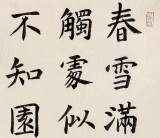 春雪滿
觸處似
不知園